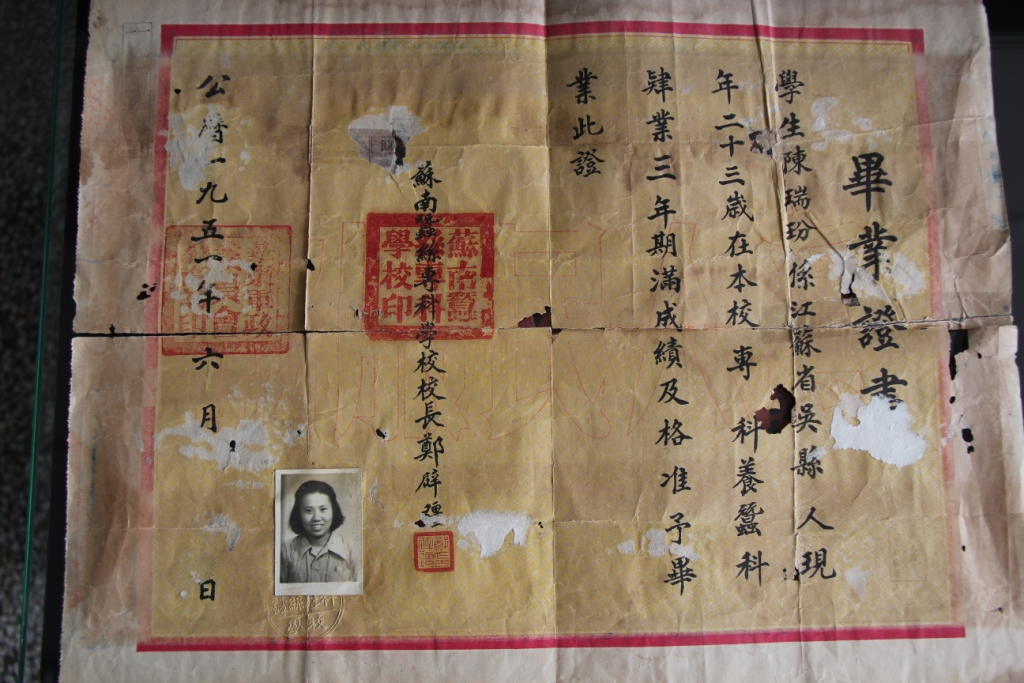 畢業證書
學生陳瑞玢係江蘇省吳縣人現
年二十三歲在本校專科養蠶科
肄業三年期滿成績及格准予畢
業此證
蘇南蠶絲專科學校校長鄭辟疆
蘇南蠶絲專科學校印
公曆一九五一年六月 日